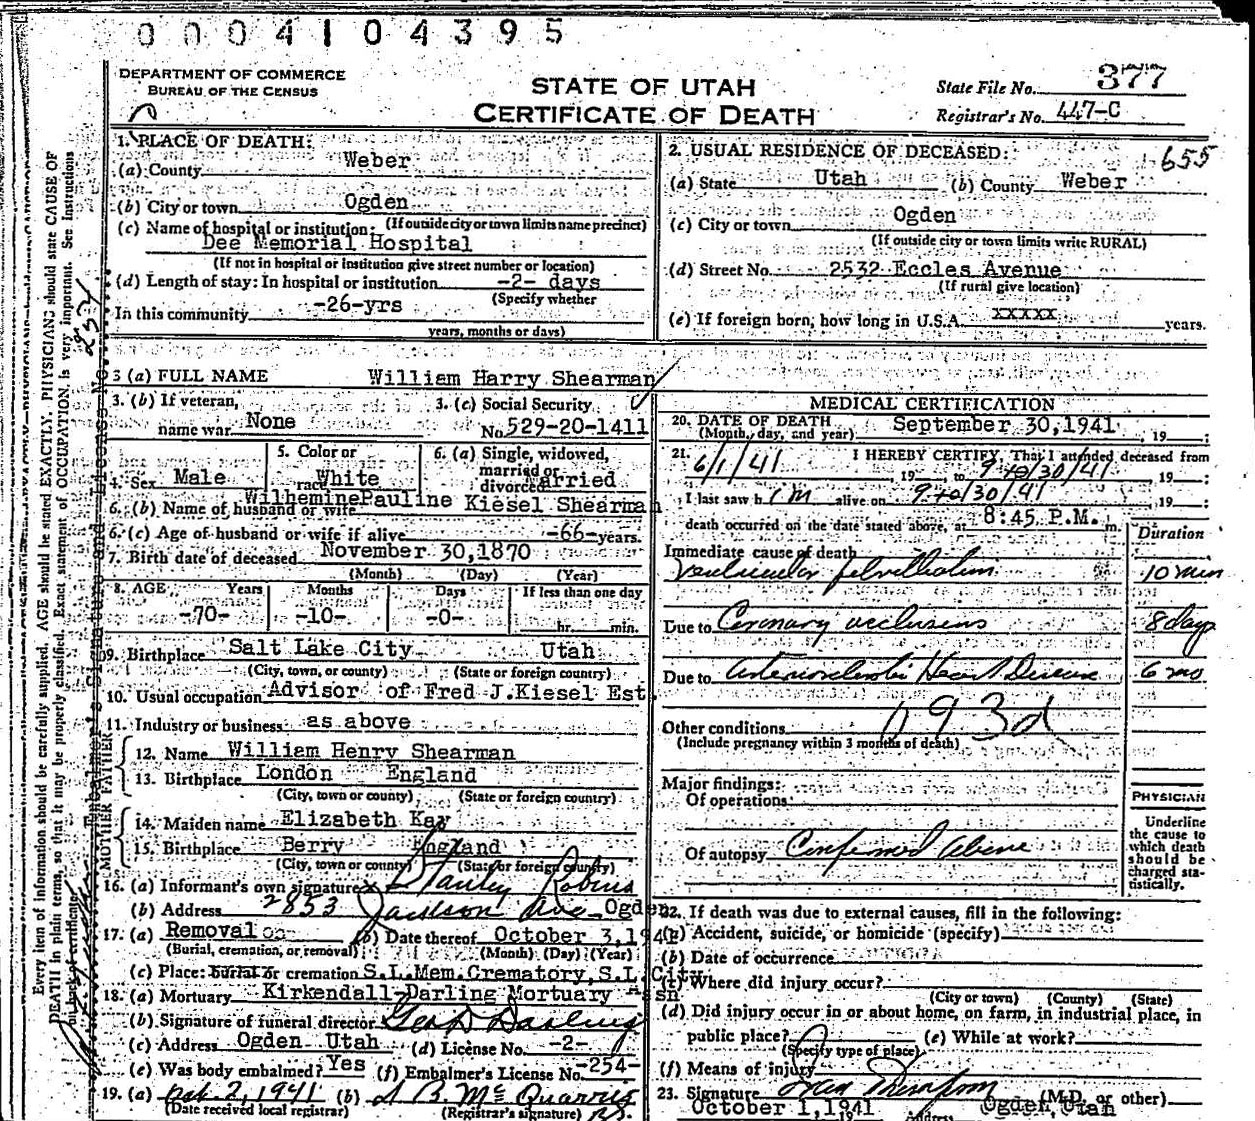 0004104395
DEPARTMENT OF COMMERCE
BUREAU OF THE CENSUS
STATE OF UTAH
CERTIFICATE OF DEATH
State File No. 377
Registrar's No. 447-C
1. PLACE OF DEATH:
(a) County Weber
(b) City or town Ogden
(If outside city or town limits name precinct)
(c) Name of hospital or institution:
Dee Memorial Hospital
(If not in hospital or institution give street number or location)
(d) Length of stay: In hospital or institution -2- days
(Specify whether
In this community -26-yrs
years, months or days)
2. USUAL RESIDENCE OF DECEASED: 655
(a) State Utah (b) County Weber
(c) City or town Ogden
(If outside city or town limits write RURAL)
(d) Street No. 2532 Eccles Avenue
(If rural give location)
(e) If foreign born, how long in U.S.A. xxxxx years.
3 (a) FULL NAME William Harry Shearman
3. (b) If veteran,
name war None
3. (c) Social Security
No. 529-20-1411
4. Sex Male
5. Color or
race White
6. (a) Single, widowed,
married or
divorced Married
6. (b) Name of husband or wife Wilhemine Pauline Kiesel Shearman
6. (c) Age of husband or wife if alive -66- years.
7. Birth date of deceased November 30,1870
(Month) (Day) (Year)
8. AGE Years Months Days If less than one day
-70- -10- -0- hr. min.
9. Birthplace Salt Lake City Utah
(City, town, or county) (State or foreign country)
10. Usual occupation Advisor of Fred J.Kiesel Est.
11. Industry or business as above
FATHER
12. Name William Henry Shearman
13. Birthplace London England
(City, town or county) (State or foreign country)
MOTHER
14. Maiden name Elizabeth Kay
15. Birthplace Berry England
(City, town or county) (State or foreign country)
16. (a) Informant's own signature Stanley Robins
(b) Address 2853 Jackson Ave Ogden
17. (a) Removal (b) Date thereof October 3,1941
(Burial, cremation, or removal) (Month) (Day) (Year)
(c) Place: burial or cremation S.L.Mem.Crematory,S.L.City
18. (a) Mortuary Kirkendall-Darling Mortuary Assn
(b) Signature of funeral director Geo D Darling
(c) Address Ogden Utah (d) License No. -2-
(e) Was body embalmed? Yes (f) Embalmer's License No. -254-
19. (a) Oct. 2, 1941 (b)
(Date received local registrar) (Registrar's signature)
MEDICAL CERTIFICATION
20. DATE OF DEATH
(Month, day, and year) September 30,1941, 19
21. I HEREBY CERTIFY, That I attended deceased from
6/1/41, 19 , to 9/30/41, 19 ;
I last saw him alive on 9/30/41, 19 ;
death occurred on the date stated above, at 8:45 P.M. m.
Duration
Immediate cause of death
Ventricular fibrillation 10 min
Due to Coronary occlusions 8 days
Due to Arteriosclerotic Heart Disease 6 mo
Other conditions 93d
(Include pregnancy within 3 months of death)
Major findings:
Of operations
Of autopsy Confirmed Above
PHYSICIAN
Underline
the cause to
which death
should be
charged sta-
tistically.
22. If death was due to external causes, fill in the following:
(a) Accident, suicide, or homicide (specify)
(b) Date of occurrence
(c) Where did injury occur?
(City or town) (County) (State)
(d) Did injury occur in or about home, on farm, in industrial place, in
public place? (e) While at work?
(Specify type of place)
(f) Means of injury
23. Signature (M.D. or other)
October 1,1941 19 Address Ogden, Utah
Every item of information should be carefully supplied. AGE should be stated EXACTLY. PHYSICIANS should state CAUSE OF
DEATH in plain terms, so that it may be properly classified. Exact statement of OCCUPATION is very important. See Instructions
on back of certificate.